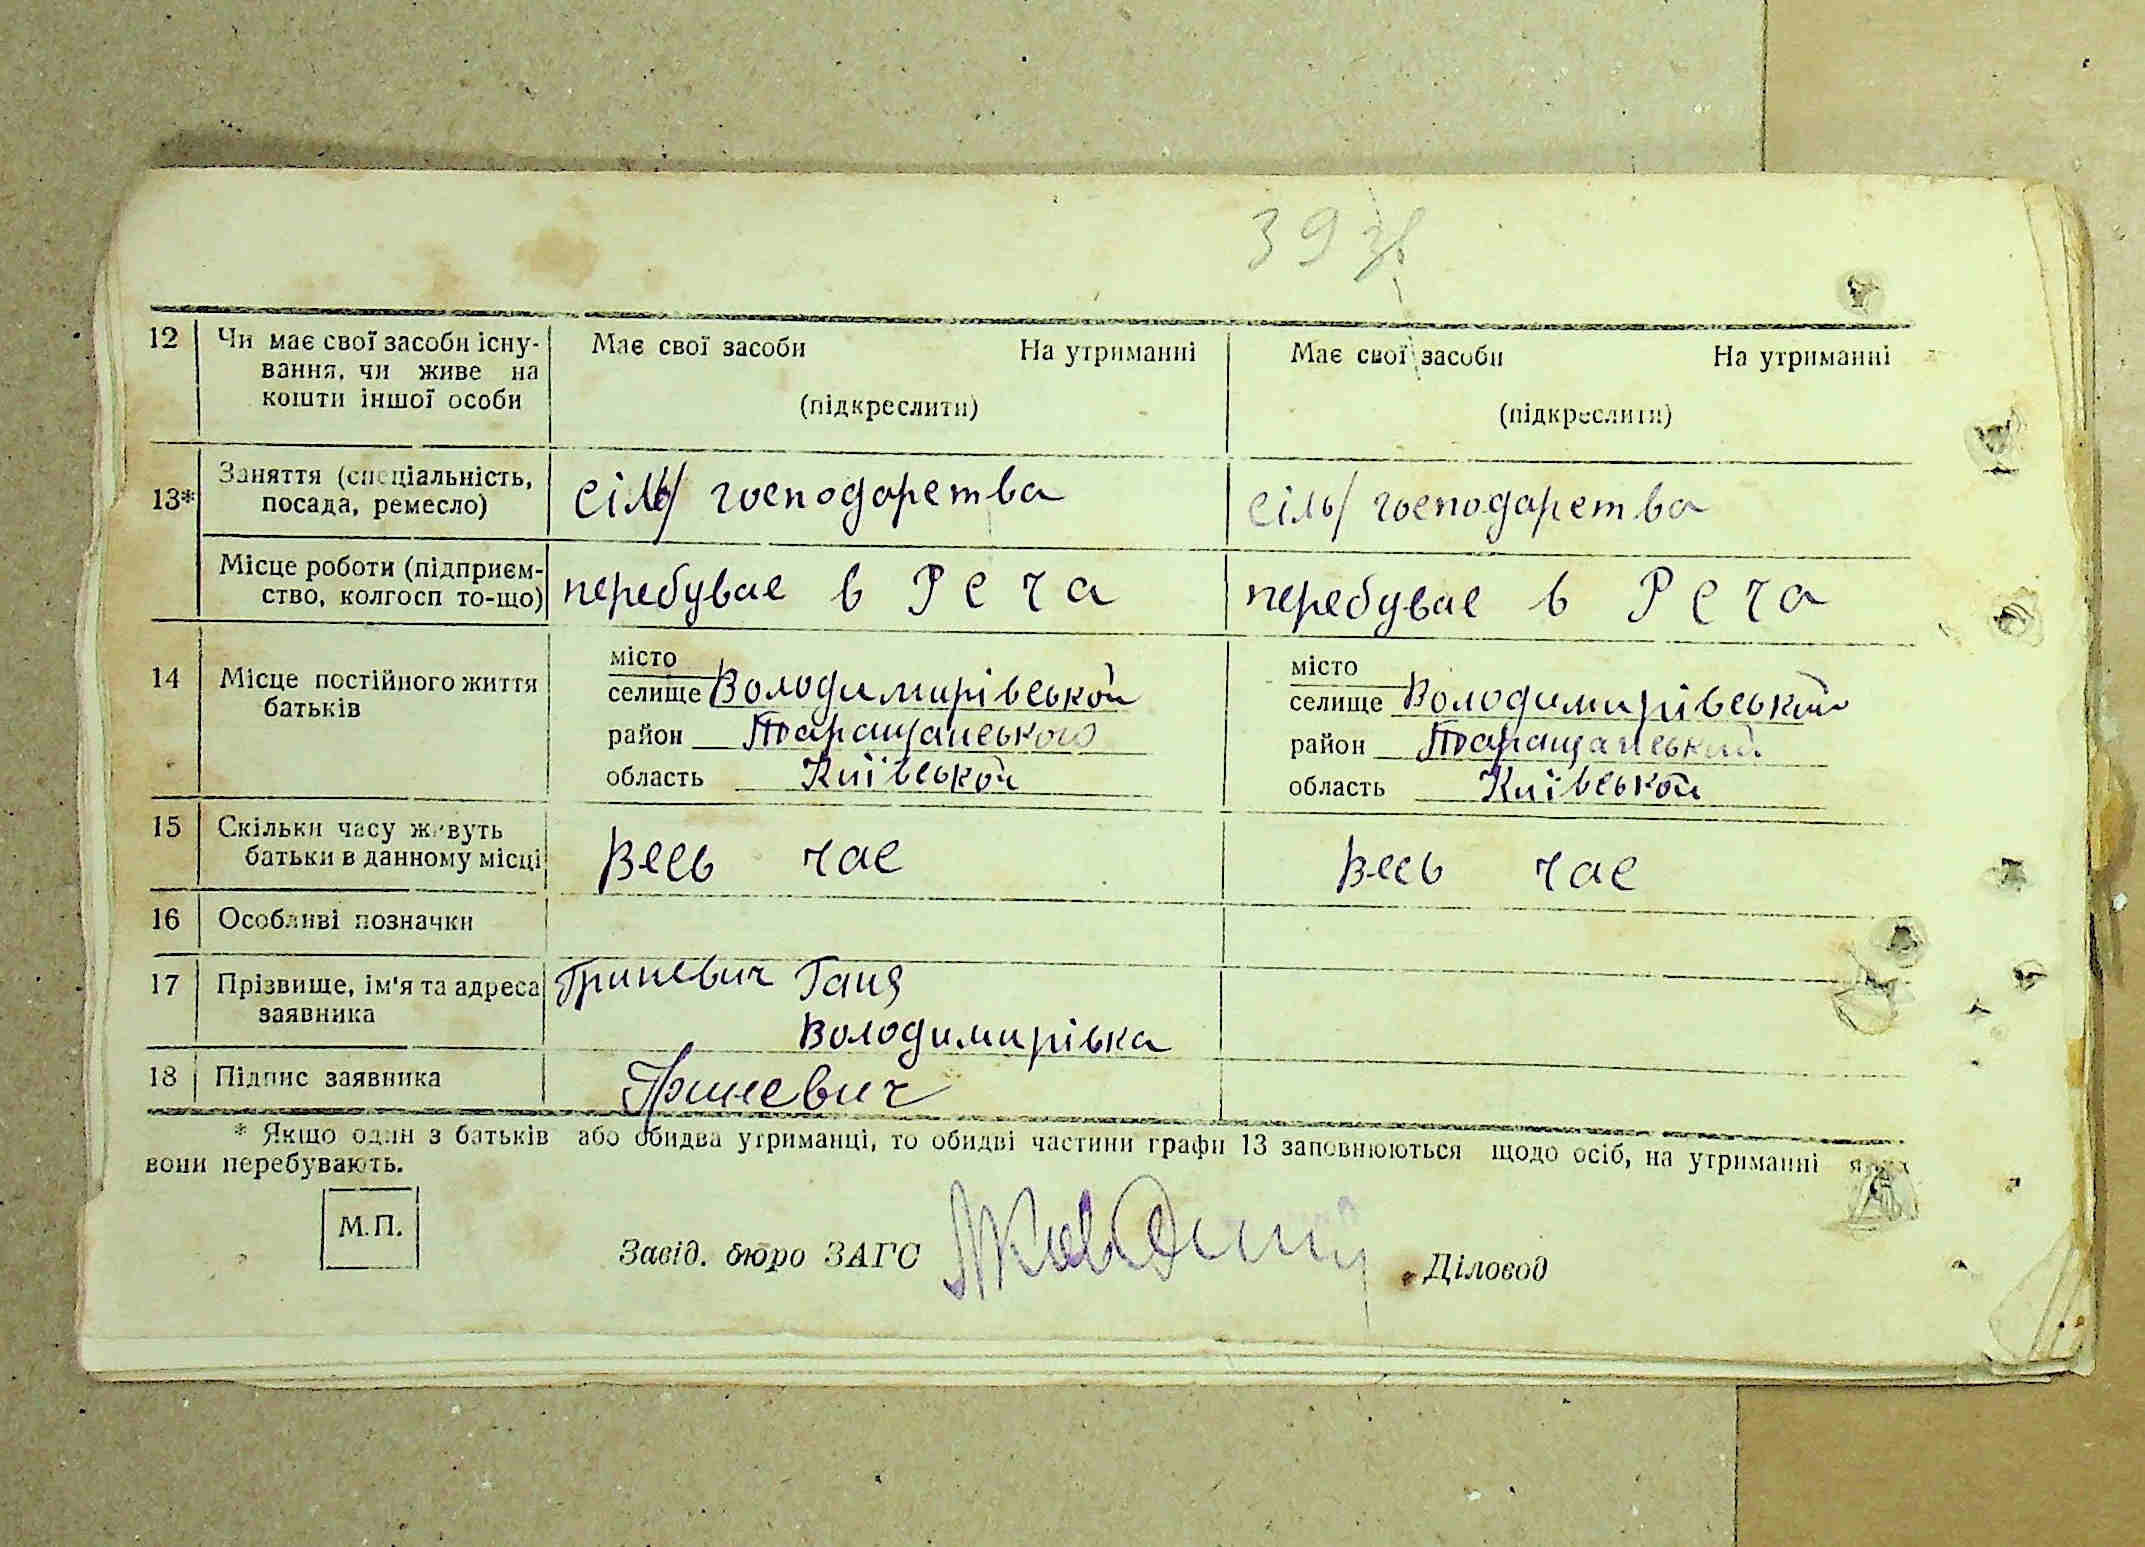 39 зв.
12 Чи має свої засоби існу- Має свої засоби На утриманні Має свої засоби На утриманні
вання, чи живе на
кошти іншої особи (підкреслити) (підкреслити)
13* Заняття (спеціальність, сіль/ господарства сіль/ господарства
посада, ремесло)
Місце роботи (підприєм- перебуває в Реча перебуває в Реча
ство, колгосп то-що)
місто місто
14 Місце постійного життя селище Володимирівської селище Володимирівської
батьків район Таращанського район Таращанський
область Київської область Київської
15 Скільки часу живуть Весь час Весь час
батьки в данному місці
16 Особливі позначки
17 Прізвище, ім'я та адреса Гриневич Ганя
заявника Володимирівка
18 Підпис заявника Гриневич
* Якщо один з батьків або обидва утриманці, то обидві частини графи 13 заповнюються щодо осіб, на утриманні яких
вони перебувають.
М.П.
Завід. бюро ЗАГС Діловод